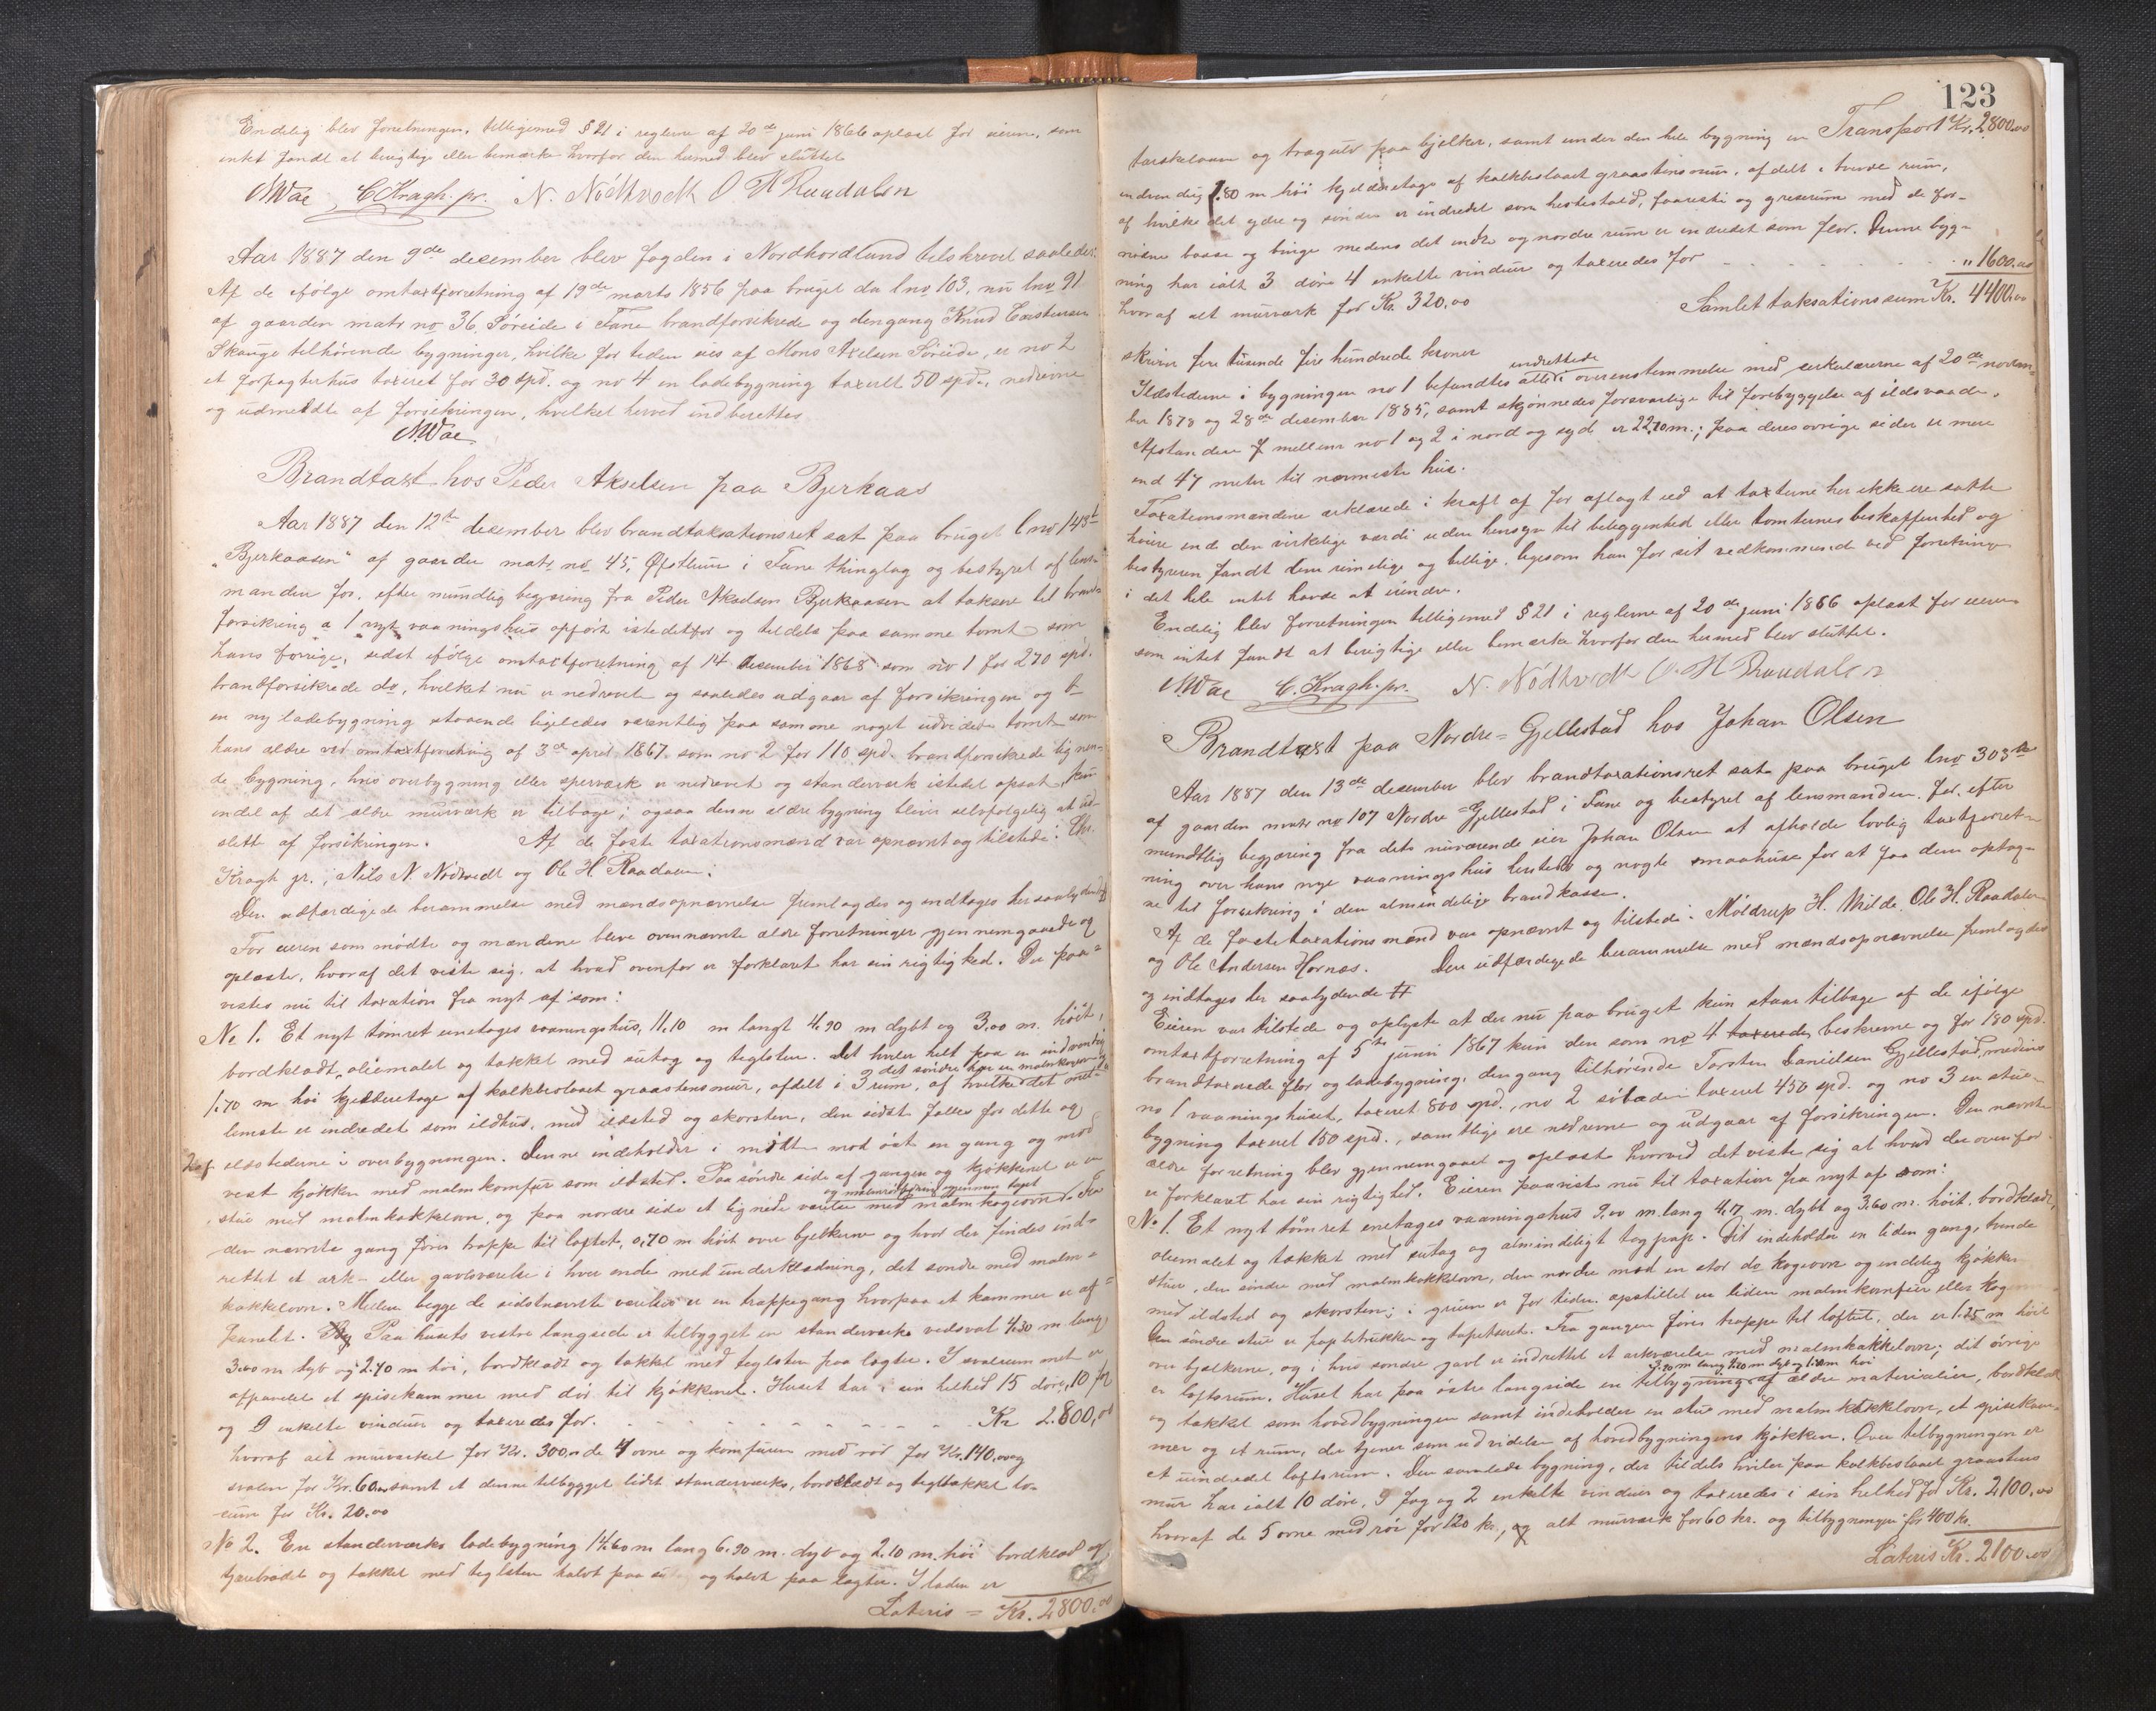 Endelig blev forretningen, tilligemed § 21 i reglerne af 20de juni 1866 oplæst for eieren, som
intet fandt at berigtige eller bemærke hvorfor den hermed blev sluttet.
MWae C Kragh. pr. N. Nödtvedt O H Raadalen
Aar 1887 den 9de december blev fogden i Nordhordland tilskrevet saaledes:
Af de ifölge omtaxtforretning af 19de marts 1856 paa bruget da lno 103, nu lno 91
af gaarden matr no 36, Söreide i Fane brandforsikrede og dengang Knud Carstensen
Skauge tilhørende bygninger, hvilke for tiden eies af Mons Axelsen Söreide, er no 2
et forpagterhus taxeret for 30 spd. og no 4 en ladebygning taxeret 50 spd., nedrevne
og udmeldte af forsikringen, hvilket herved indberettes
MWae
Brandtaxt hos Peder Akselsen paa Bjerkaas
Aar 1887 den 12te december blev brandtaksationsret sat paa bruget lno 148b
"Bjerkaasen" af gaarden matr no 45, Øfsthun i Fane thinglag og bestyret af lens-
manden for, efter mundlig begjæring fra Peder Akselsen Bjerkaasen at taksere til brand-
forsikring a 1 nyt vaaningshus opført istedetfor og tildels paa samme tomt som
hans forrige, sidst ifölge omtaxtforretning af 14 december 1868 som no 1 for 270 spd.
brandforsikrede do, hvilket nu er nedrevet og saaledes udgaar af forsikringen og b
en ny ladebygning staaende ligeledes væsentlig paa samme noget udvidede tomt som
hans ældre ved omtaxtforretning af 3de april 1867 som no 2 for 110 spd. brandforsikrede lignen-
de bygning, hvis overbygning eller sperværk er nedrevet og standerværk istedet opsat, kun
endel af det ældre muurværk er tilbage; ogsaa denne ældre bygning bliver selvfølgelig at ud-
slette af forsikringen. Af de faste taxationsmænd var opnævnt og tilstede: Chr.
Kragh pr., Nils N. Nödtvedt og Ole H. Raadalen.
Den udfærdigede berammelse med mændsopnævnelse fremlagdes og indtages her saalydende #
For eieren som mødte og mændene bleve ovennævnte ældre forretninger gjennemgaaede og
oplæste, hvoraf det viste sig, at hvad ovenfor er forklaret har sin rigtighed. Der paa-
vistes nu til taxation fra nyt af som:
No 1. Et nyt tömret enetages vaaningshus, 11,10 m langt 4,90 m dybt og 3,00 m. höit,
bordklædt, oliemalet og takket med sutag og teglsten. Det hviler helt paa en indvendig
1.70 m höi kjelderetage af kalkbeslaaet graastensmur, afdelt i 3 rum, af hvilke det
lemste er indredet som ildhus, med ildsted og skorsten, den sidst fælles for dette og
ildstederne i overbygningen. Denne indeholder i midten mod öst en gang og mod
vest kjökken med malmkomfur som ildsted. Paa söndre side af gangen og kjökkenet er en
og malmrørledning gjennem loftet
stue med malmkakkelovn, og paa nordre side et lignede værelse med malm kogeovn. Fra
den nævnte gang förer trappe til loftet, 0,70 m höit over bjelkerne og hvor der findes ind-
rettet et ark- eller gavlværelse i hver ende med underklædning, det søndre med malm-
kakkelovn. Mellem begge de sidstnævnte værelser er en trappegang hvorpaa et kammer er af-
panelet. Paa husets vestre langside er tilbygget en standerværks vedsval 4,30 m lang
3.00 m dyb og 2.40 m höi, bordklædt og takket med teglsten paa lægter. I svalrummet er
afpanelet et spisekammer med dör til kjökkenet. Huset har i sin helhed 15 döre, 10 fag
og 9 enkelte vinduer og taxeredes for. Kr 2.800,00
hvoraf alt muurværket for Kr. 300,00 de 4 ovne og komfuren med rör for Kr. 140,00 og
svalen for Kr. 60,00 samt et denne tilbygget lidet standerværks, bordklædt og tegltakket lo-
cum for Kr. 20.00
No 2. En standerværks ladebygning 14,60 m lang 6.90 m. dyb og 2.10 m. höi bordklæd og
tjærebredet og takket med teglsten halvt paa sutag og halvt paa lægter. I laden er
Lateris = Kr. 2800,00
123
Transport Kr. 2800.00
tærskelaave og trægulv paa bjelker, samt under den hele bygning en
indvendig 1.80 m höi kjelderetage af kalkbeslaaet graastensmur, afdelt i tvende rum,
af hvilke det ydre og søndre er indredet som hestestald, faaresti og griserum med de for-
nødne baase og binge medens det indre og nordre rum er indredet som flor. Denne byg-
ning har ialt 3 döre 4 enkelte vinduer og taxeredes for " 1600.00
hvoraf alt muurværk for Kr. 320,00 Samlet taksationssum Kr. 4400,00
skriver fire tusende fire hundrede kroner
indrettede
Ildstederne i bygningen no 1 befandtes at i overenstemmelse med cirkulærerne af 20de novem-
ber 1878 og 28de december 1885, samt skjønnedes forsvarlige til forebyggelse af ildsvaade.
Afstanden mellem no 1 og 2 i nord og syd er 22,70 m.; paa deres øvrige sider er mere
end 47 meter til nærmeste hus.
Taxationsmændene erklærede i kraft af før aflagt ed at taxterne her ikke ere satte
høiere end den virkelige værdi uden hensyn til beliggenhed eller tomternes beskaffenhed og
bestyreren fandt dem rimelige og billige, ligesom han for sit vedkommende ved forretningen
i det hele intet havde at erindre.
Endelig blev forretningen tilligemed § 21 i reglerne af 20de juni 1866 oplæst for eieren
som intet fandt at berigtige eller bemærke hvorfor den hermed blev sluttet.
MWae C. Kragh. pr. N. Nödtvedt O. H Raadalen
Brandtaxt paa Nordre-Gjellestad hos Johan Olsen
Aar 1887 den 13de december blev brandtaxationsret sat paa bruget lno 303
af gaarden matr no 107 Nordre-Gjellestad i Fane og bestyret af lensmanden for, efter
mundtlig begjæring fra dets nuværende eier Johan Olsen at afholde lovlig taxtforret-
ning over hans nye vaaningshus og nogle smaahuse for at faa dem optag-
ne til forsikring i den almindelige brandkasse.
Af de faste taxationsmænd var opnævnt og tilstede: Möldrup H. Milde, Ole H. Raadalen
og Ole Andersen Hornæs. Den udfærdigede berammelse med mændsopnævnelse fremlagdes
og indtages her saalydende #
Eieren var tilstede og oplyste at der nu paa bruget kun staar tilbage af de ifölge
omtaxtforretning af 5te juni 1867 kun den som no 4 taxerede beskrevne og for 180 spd.
brandtaxerede flor og ladebygning, dengang tilhörende Torsten Danielsen Gjellestad, medens
no 1 vaaningshuset, taxeret 800 spd., no 2 söboden taxeret 450 spd. og no 3 en stue-
bygning taxeret 150 spd., samtlige ere nedrevne og udgaar af forsikringen. Den nævnte
ældre forretning blev gjennemgaaet og oplæst hvorved det viste sig at hvad der ovenfor
er forklaret har sin rigtighed. Eieren paaviste nu til taxation fra nyt af som:
No 1. Et nyt tömret enetages vaaningshus 9,00 m. lang 4,17 m. dybt og 3,60 m. höit. bordklædt,
oliemalet og takket med sutag og almindeligt tagpap. Det indeholder en liden gang, tvende
stuer, den söndre med malmkakkelovn, den nordre med en stor do kogeovn og endelig kjökken
med ildsted og skorsten; i gruen er for tiden opstillet en liden malmkomfur eller
Den söndre stue er papbetrukken og tapetseret. Fra gangen förer trappe til loftet, der er 1.25 m höit
over bjelkerne, og i hvis søndre gavl er indrettet et arkværelse med malmkakkelovn; det övrige
er loftsrum. Huset har paa östre langside en tilbygning af ældre materialier, bordklædt
og takket som hovedbygningen samt indeholder en stue med malmkakkelovn, et spisekam-
mer og et rum, der tjener som udvidelse af hovedbygningens kjökken. Over tilbygningen er
et uindredet loftsrum. Den samlede bygning, der tildels hviler paa kalkbeslaaet graastens
mur har ialt 10 döre, 9 fag og 2 enkelte vinduer og taxeredes i sin helhed for Kr. 2100,00
hvoraf de 5 ovne med rör for 120 kr., og alt muurværk for 60 kr. og tilbygningen for 400 kr.
Lateris Kr. 2100.00